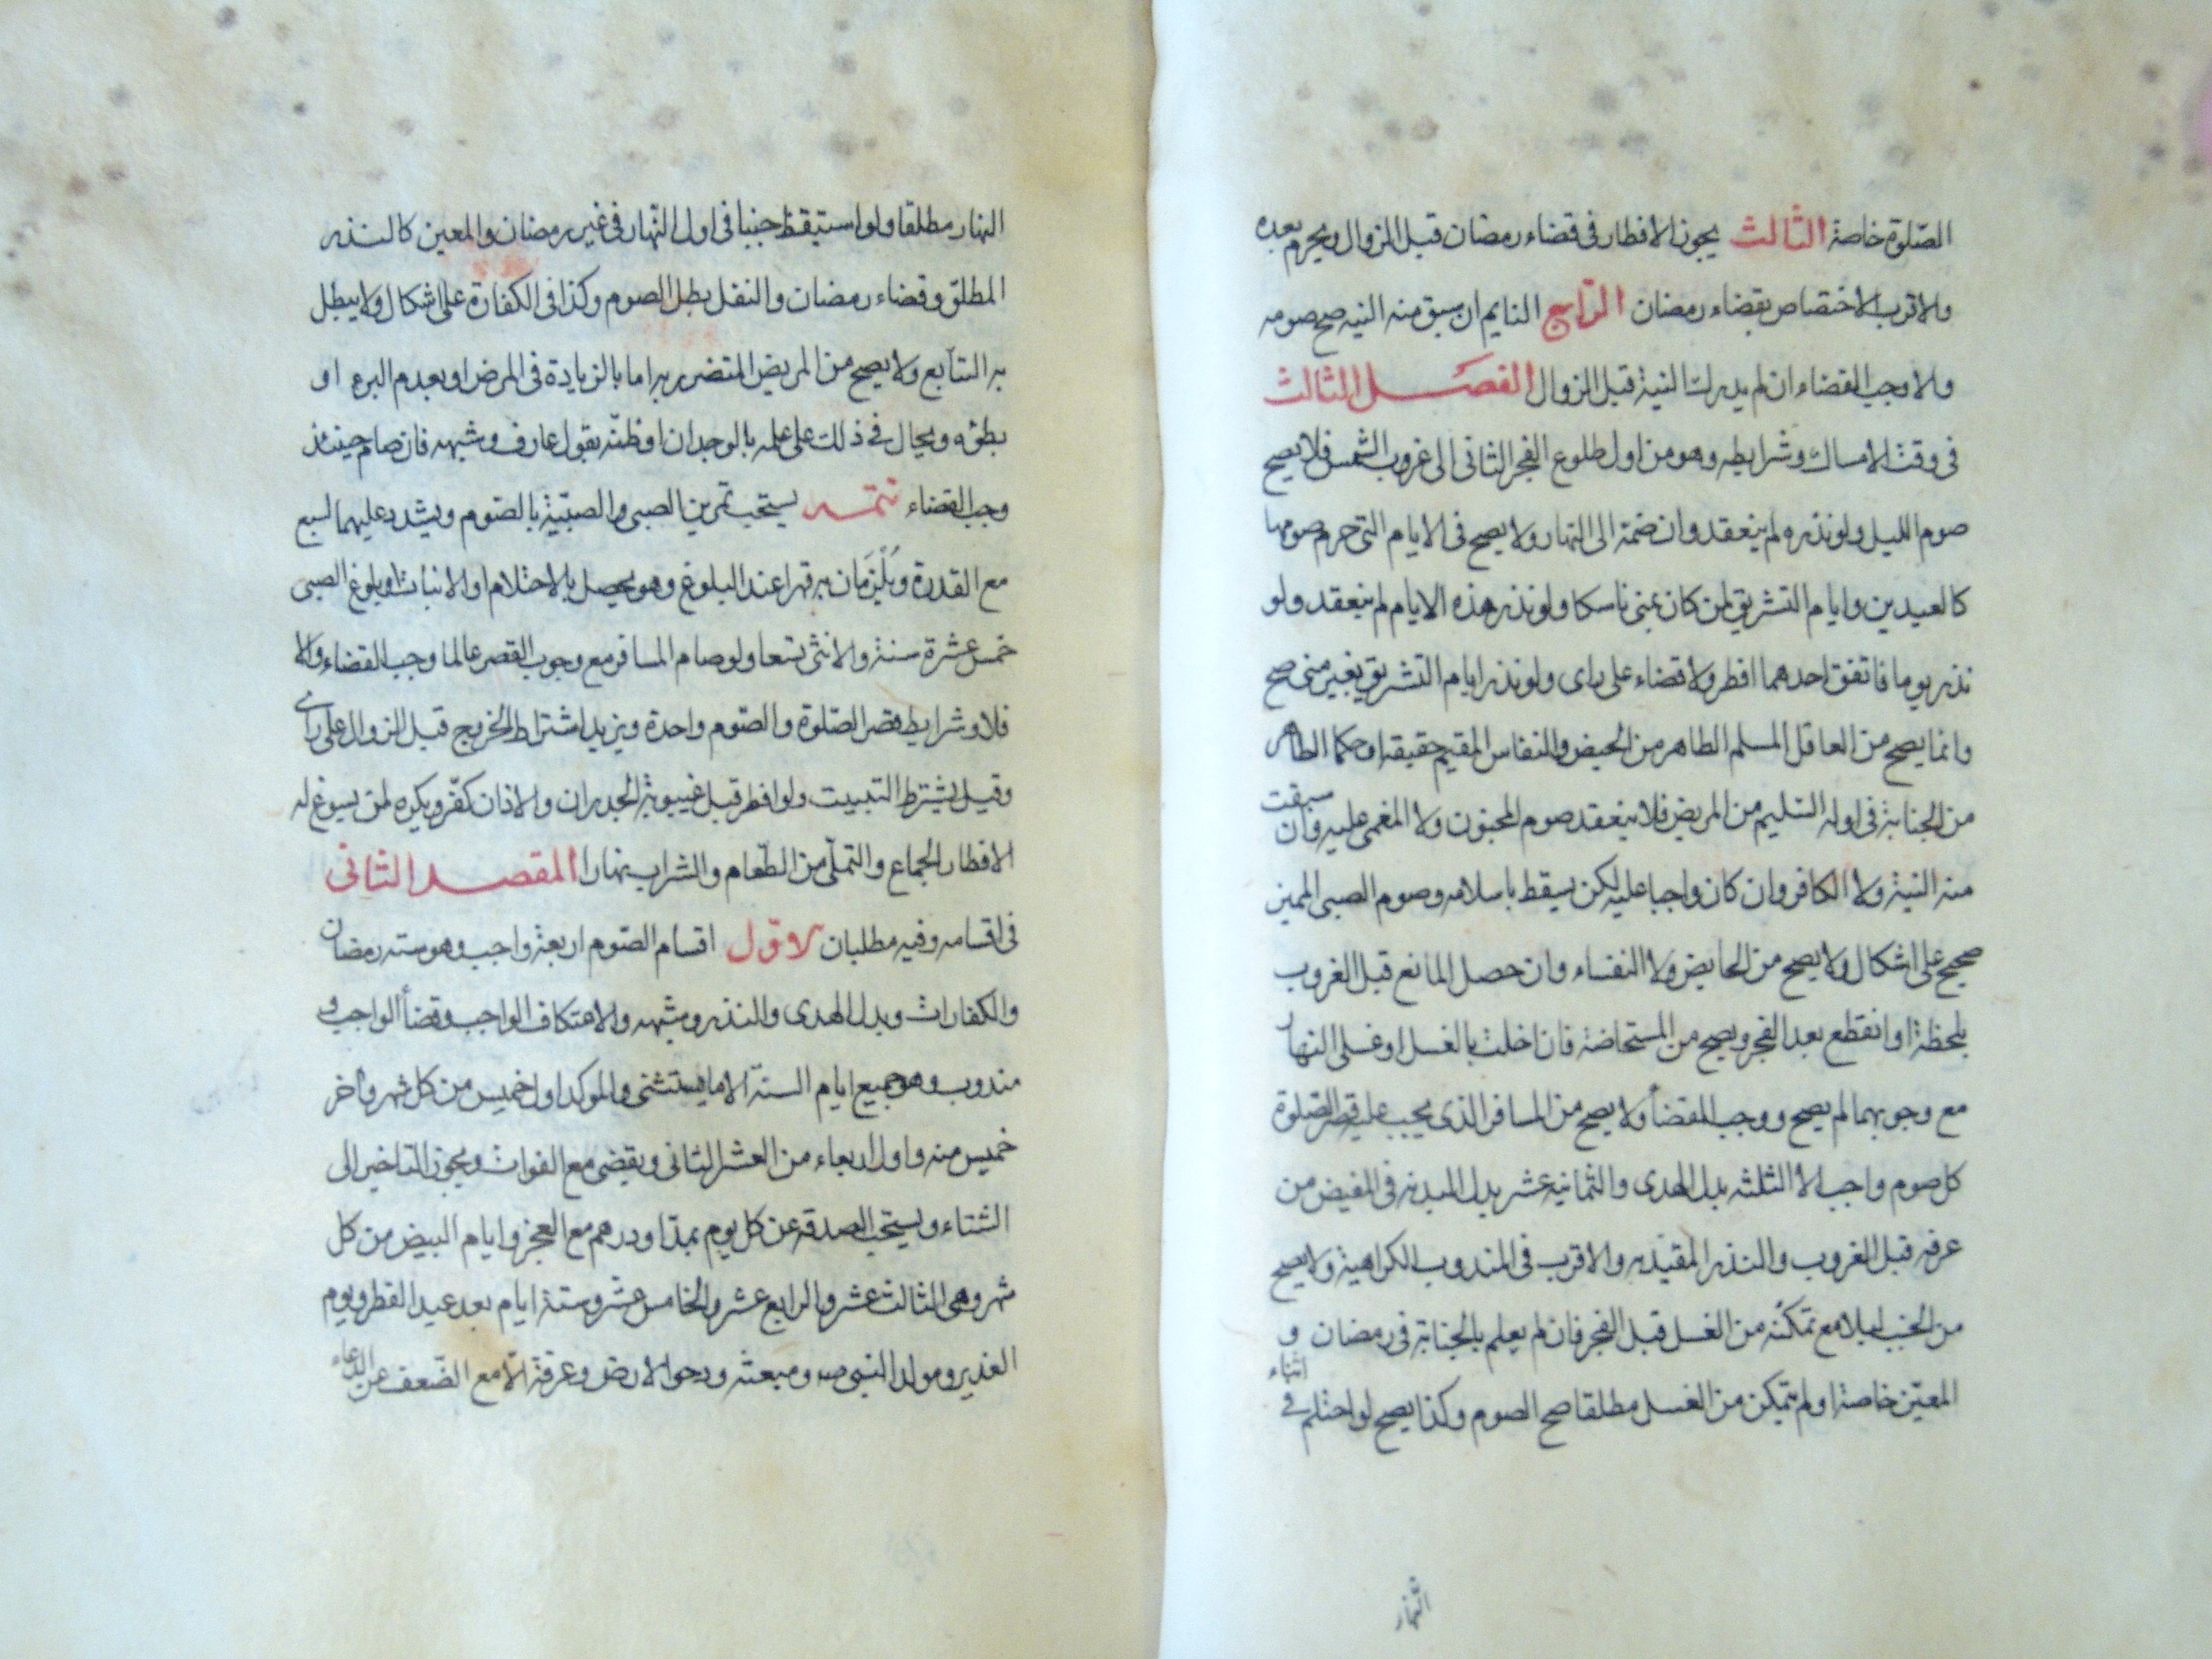 الصّلوة خاصة الثالث يجوز الافطار فى قضاء رمضان قبل الزوال ويحرم بعده
والاقرب الاختصاص بقضاء رمضان الرّابع النايم ان سبق منه النيه صح صومه
والا وجب القضاء ان لم يدرك النية قبل الزوال الفصل الثالث
فى وقت الامساك وشرايطه وهو من اول طلوع الفجر الثانى الى غروب الشمس فلا يصح
صوم الليل ولو نذره لم ينعقد وان ضمّه الى النهار ولا يصح فى الايام التى حرم صومها
كالعيدين وايام التشريق لمن كان بمنى ناسكا ولو نذر هذه الايام لم ينعقد ولو
نذر يوما فاتفق احدهما افطر ولا قضاء على راى ولو نذر ايام التشريق بغير منى صح
وانما يصح من العاقل المسلم الطاهر من الحيض والنفاس المقيم حقيقه او حكما الطاهر
من الجنابة فى اوله السليم من المريض فلا ينعقد صوم المجنون ولا المغمى عليه وان سبقت
منه النية ولا الكافر وان كان واجبا عليه لكن يسقط باسلامه وصوم الصبى المميز
صحيح على اشكال ولا يصح من الحايض ولا النفساء وان حصل المانع قبل الغروب
بلحظة او انقطع بعد الفجر ويصح من المستحاضة فان اخلت بالغسل او غسلى النهار
مع وجوبهما لم يصح ووجب القضأ ولا يصح من المسافر الذى يجب عليه قصر الصلوة
كل صوم واجب الا الثلثه بدل الهدى والثمانيه عشر بدل البدنه فى المفيض من
عرفه قبل الغروب والنذر المقيد به والاقرب فى المندوب الكراهية ولا يصح
من الجنب ليلا مع تمكنه من الغسل قبل الفجر فان لم يعلم بالجنابة فى رمضان و
المعيّن خاصة او لم يتمكن من الغسل مطلقا صح الصوم وكذا يصح لو احتلم فى اثناء
النهار
النهار مطلقا ولو استيقظ جنبا فى اول النّهار فى غير رمضان والمعين كالنذر
المطلق وقضاء رمضان والنفل بطل الصوم وكذا فى الكفارة على اشكال ولا يبطل
به التتابع ولا يصح من المريض المتضرر به اما بالزيادة فى المرض او بعدم البرء او
بطؤه ويحال فى ذلك على علمه بالوجدان او ظنّه بقول عارف وشبهه فان صام حينئذ
وجب القضاء تتمه يستحب تمرين الصبى والصبيّة بالصّوم ويشدد عليهما لسبع
مع القدرة ويُلْزَمان به قهرا عند البلوغ وهو يحصل بالاحتلام او الانبات او بلوغ الصبى
خمس عشرة سنة والانثى تسعا ولو صام المسافر مع وجوب القصر عالما وجب القضاء والا
فلا وشرايط قصر الصّلوة والصّوم واحدة ويزيد اشتراط الخروج قبل الزوال على راى
وقيل يشترط التبييت ولو افطر قبل غيبوبة الجدران والاذان كفّر ويكره لمن يسوغ له
الافطار الجماع والتملّى من الطّعام والشراب نهارا المقصد الثانى
فى اقسامه وفيه مطلبان الاوّل اقسام الصّوم اربعة واجب وهو سته رمضان
والكفارات وبدل الهدى والنذر وشبهه والاعتكاف الواجب وقضأ الواجب و
مندوب وهو جميع ايام السنة الا ما يستثنى والموكد اول خميس من كل شهر وآخر
خميس منه واول اربعاء من العشر الثانى ويقضى مع الفوات ويجوز التاخير الى
الشتاء ويستحب الصدقه عن كل يوم بمدّ او درهم مع العجز وايام البيض من كل
شهر وهى الثالث عشر والرابع عشر والخامس عشر وستة ايام بعد عيد الفطر ويوم
الغدير ومولد النبى ص ومبعثه ودحو الارض وعرفة الّا مع الضّعف عن الدعاء